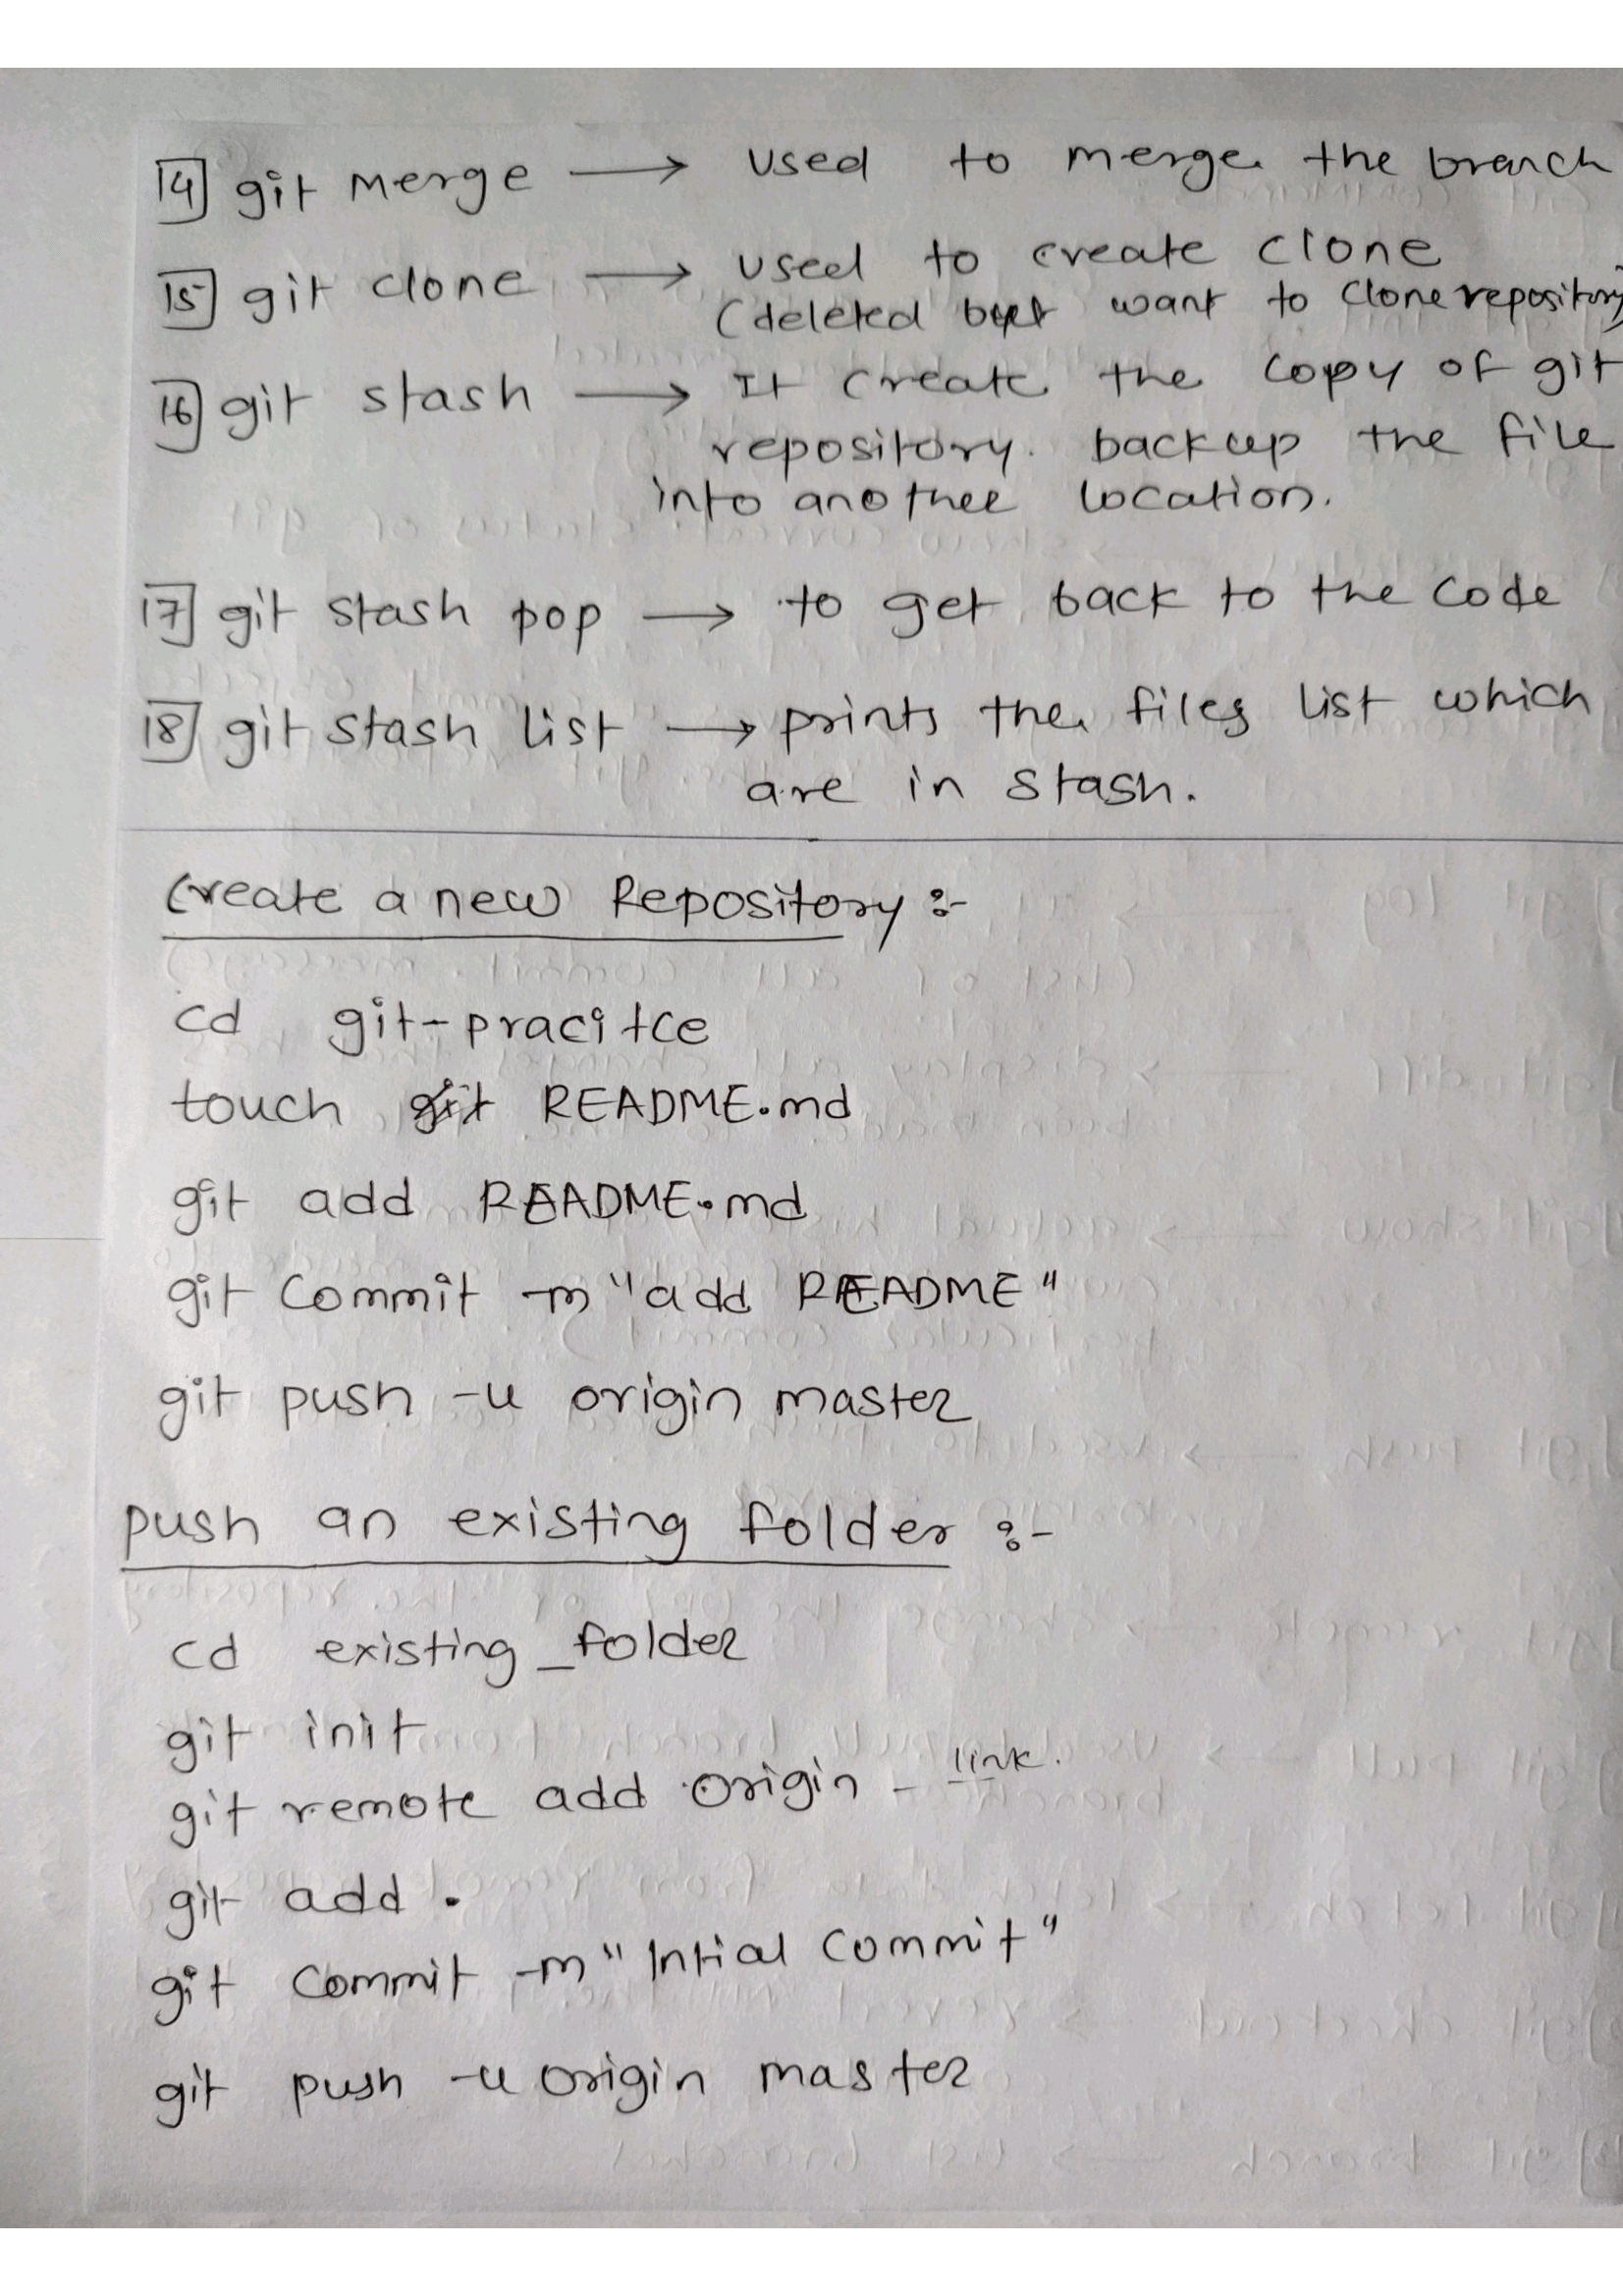 14 git merge → used to merge the branch
15 git clone → used to create clone
(deleted but want to clone repository
16 git stash → It create the copy of git
repository. backup the file
into another location.
17 git stash pop → to get back to the code
18 git stash list → prints the files list which
are in stash.
Create a new Repository :-
cd git-pracitce
touch git README.md
git add README.md
git commit -m "add README"
git push -u origin master
push an existing folder :-
cd existing_folder
git init
git remote add origin - link.
git add .
git commit -m "Intial commit"
git push -u origin master